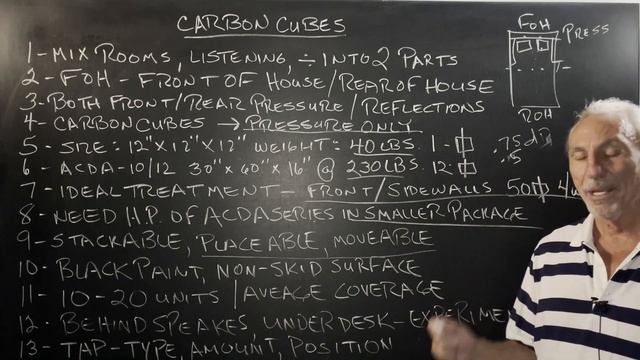 CARBON CUBES
1 - MIX ROOMS, LISTENING, ÷ INTO 2 PARTS
2 - FOH - FRONT OF HOUSE / REAR OF HOUSE
3 - BOTH FRONT / REAR PRESSURE / REFLECTIONS
4 - CARBON CUBES → PRESSURE ONLY
5 - SIZE: 12" X 12" X 12" WEIGHT: 40 LBS. 1 -
6 - ACDA - 10/12 30" X 60" X 16" @ 230 LBS. 12:
7 - IDEAL TREATMENT - FRONT / SIDEWALLS 50
8 - NEED H.P. OF ACDA SERIES IN SMALLER PACKAGE
9 - STACKABLE, PLACEABLE, MOVEABLE
10 - BLACK PAINT, NON-SKID SURFACE
11 - 10-20 UNITS / AVEAGE COVERAGE
12 - BEHIND SPEAKES, UNDER DESK - EXPERIME
13 - TAP - TYPE, AMOUNT, POSITION
FOH
PRESS
ROH
.75 dB
.5